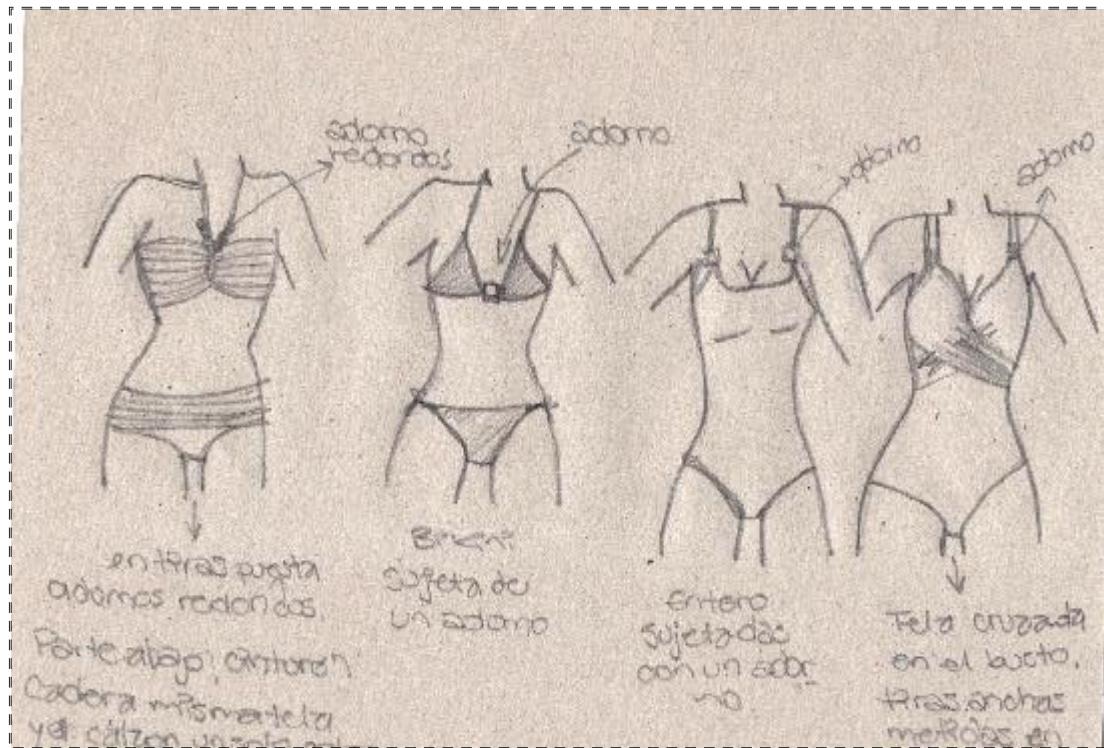 adorno
redondos
adorno
adorno
adorno
en tiras puesta
adornos redondos.
Parte abajo, cinturon
Cadera misma tela
y el calzon un solo
Bikini
sujeta de
un adorno
Entero
sujetadas
con un ador
no
Tela cruzada
en el busto,
tiras anchas
metidas en